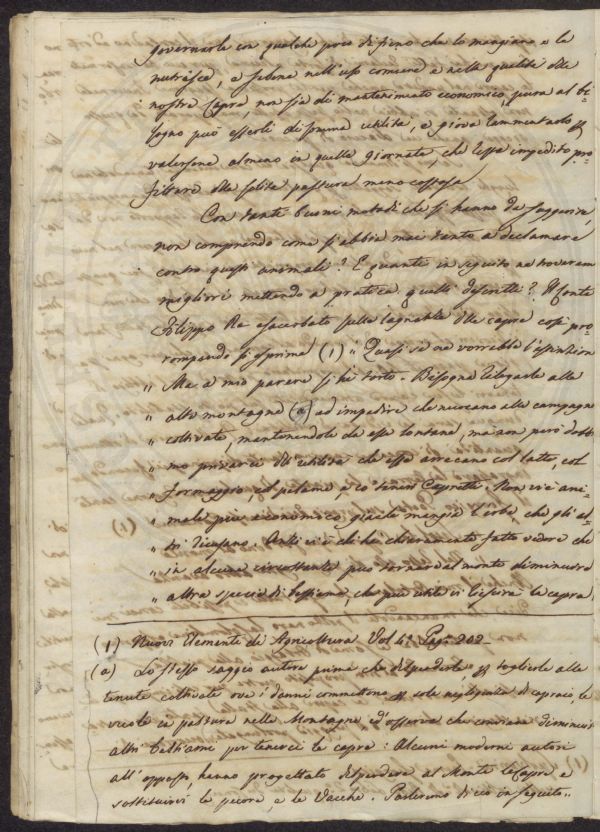 governarle con qualche poco di fieno che lo mangiano, e le
nutrisce, e sebene nell'uso comune e nelle qualità delle
nostre Capre, non sia di mantenimento economico, pure al bi-
sogno può esserli di somma utilità, e giova rammentarlo per
valersene almeno in quelle giornate, che lesse impedito pro-
fittare delle solite pasture meno costose
Con tante buoni metodi che si hanno da suggerire,
non comprendo come si abbia mai tanto a declamare
contro questi animali? E quanti in seguito ne troverem
migliori mettendo a pratica quelli descritti? Il Conte
Filippo Re esacerbato sulle lagnanze delle capre così pro-
rompendo si esprime (1) " Quasi se ne vorrebbe l'estinzion
" Ma a mio parere si hà torto. Bisogna relegarle alle
" alte montagne (a) ad impedire che nuocano alle campagne
" coltivate, mantenendole da esse lontane, ma non però dobb
" mo privarci dell'utilità che esse arrecano col latte, col
" formaggio col pelame, e co' teneri Capretti. Non vi è ani-
" male più economico, giacche mangia l'erbe, che gli al-
" tri ricusano. Anzi vi è chi ha chiaramente fatto vedere che
" in alcune circostanze può tornare al monto diminuire
" altre specie di bestiame, che più utile ci riescirà la capra
(1) Nuovi Elementi di Agricoltura Vol. 4. Pag. 202-
(a) Lo stesso saggio autore prima che disperderle per toglierle alle
tenute coltivate ove i danni commettono per sola negligenza di caprai, le
vuole in pastura nelle Montagne ed osserva che conviene diminuir
altri bestiami per tenerci le capre: Alcuni moderni autori
all'opposto, hanno progettato disperdere al Monte le Capre e
sostituirvi le pecore, e le Vacche. Parleremo di ciò in seguito..